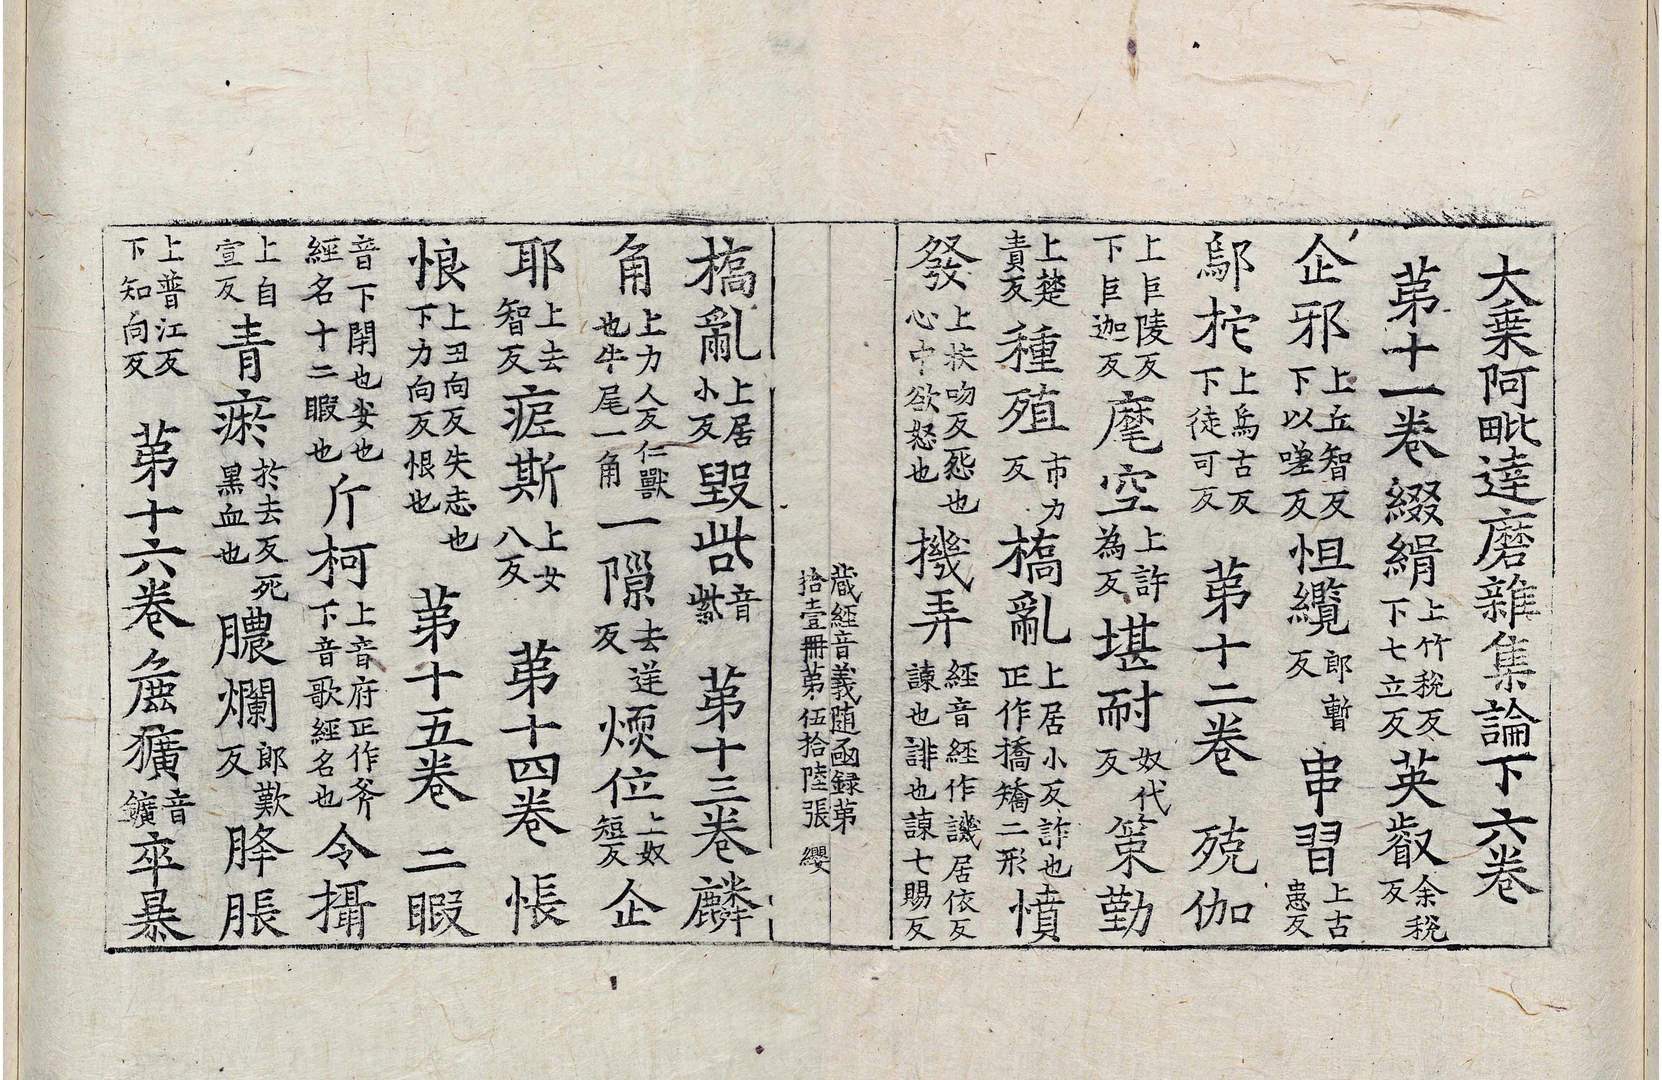 大乗阿毗達磨雜集論下六卷
第十一卷 綴緝上竹稅反下七立反英叡余稅反
企邪上丘智反下以嗟反怚纜郎暫反串習上古患反
鄔柁上烏古反下徒可反 第十二卷 殑伽
上巨陵反下巨迦反麾空上許為反堪耐奴代反策勤
上楚責反種殖市力反橋亂上居小反詐也正作撟矯二形憤
發上扶吻反惌也心中欲怒也機弄經音經作譏居依反諫也誹也諫七賜反
藏經音義随函録第
拾壹冊第伍拾陸張 纓
撟亂上居小反毀呰音紫 第十三卷 麟
角上力人反仁獸也牛尾一角一隙去逆反煗位上奴短反企
耶上去智反疟斯上女八反 第十四卷 悵
悢上丑向反失志也下力向反恨也 第十五卷 二暇
音下閑也安也經名十二暇也斤柯上音府正作斧下音歌經名也令攝
上自宣反青瘀於去反死黒血也膿爛郎歎反胮脹
上普江反下知向反 第十六卷 麁獷音鑛卒暴